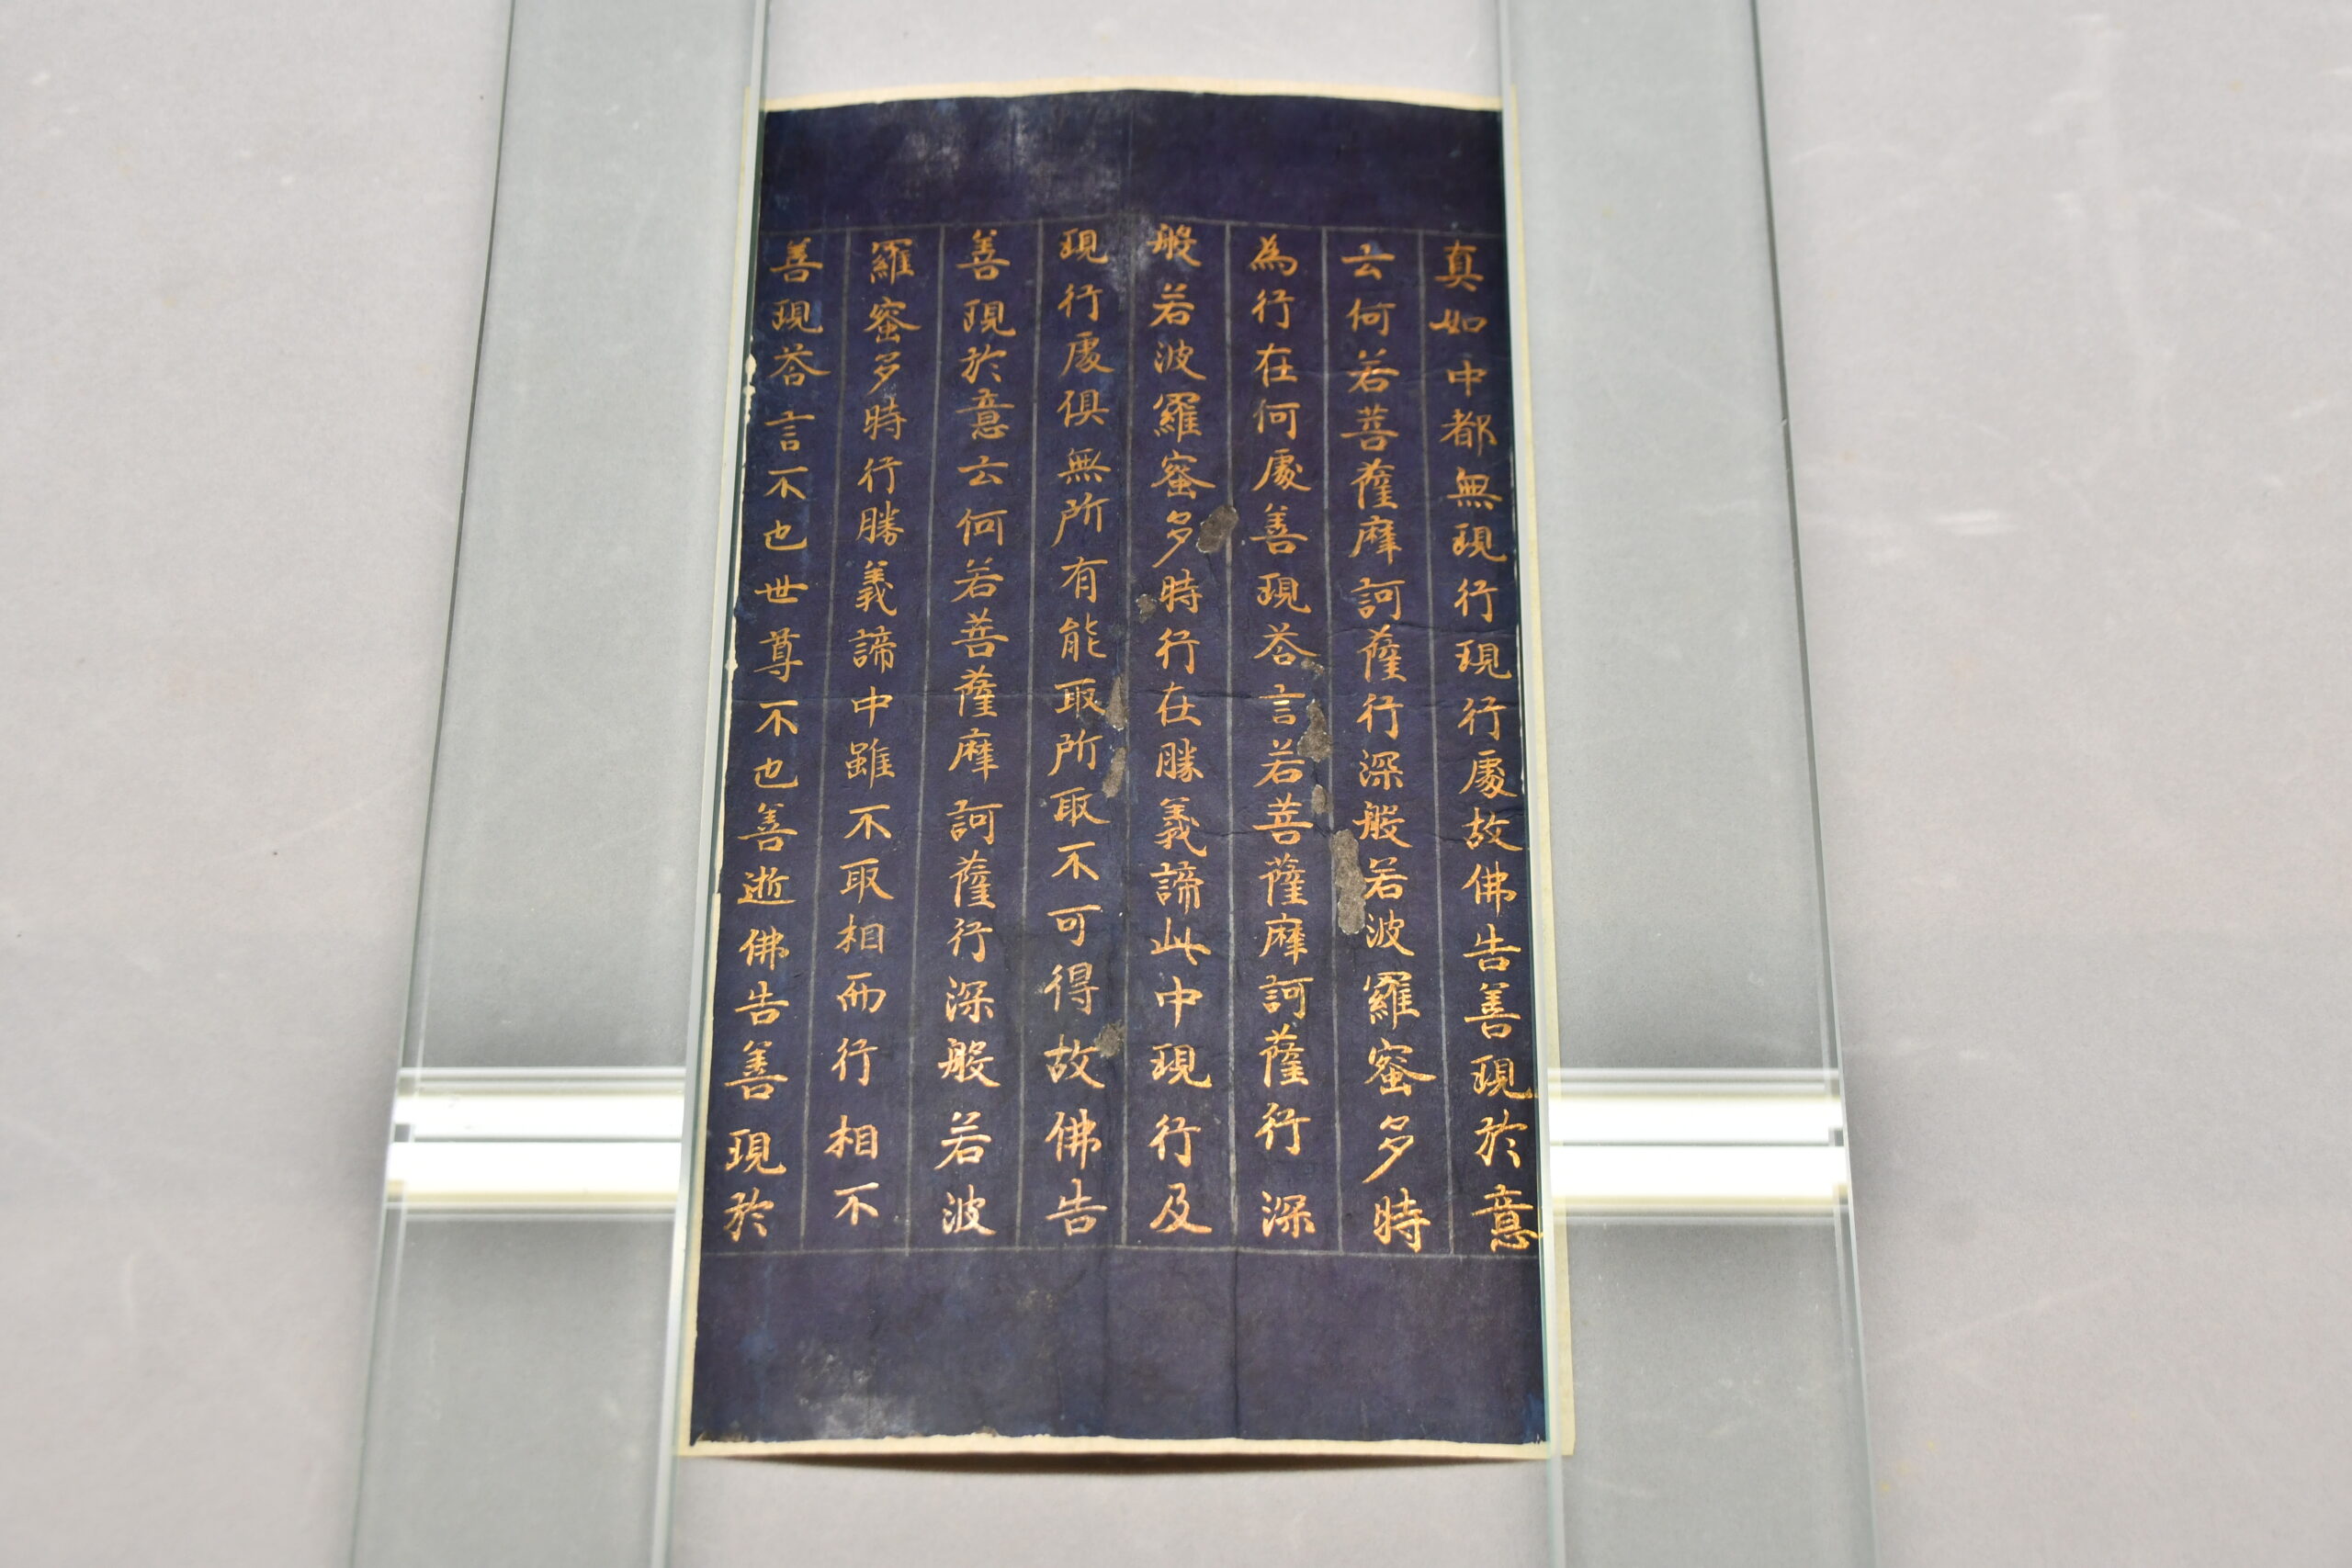 真如中都無現行現行處故佛告善現於意
云何若菩薩摩訶薩行深般若波羅蜜多時
為行在何處善現荅言若菩薩摩訶薩行深
般若波羅蜜多時行在勝義諦此中現行及
現行處俱無所有能取所取不可得故佛告
善現於意云何若菩薩摩訶薩行深般若波
羅蜜多時行勝義諦中雖不取相而行相不
善現荅言不也世尊不也善逝佛告善現於